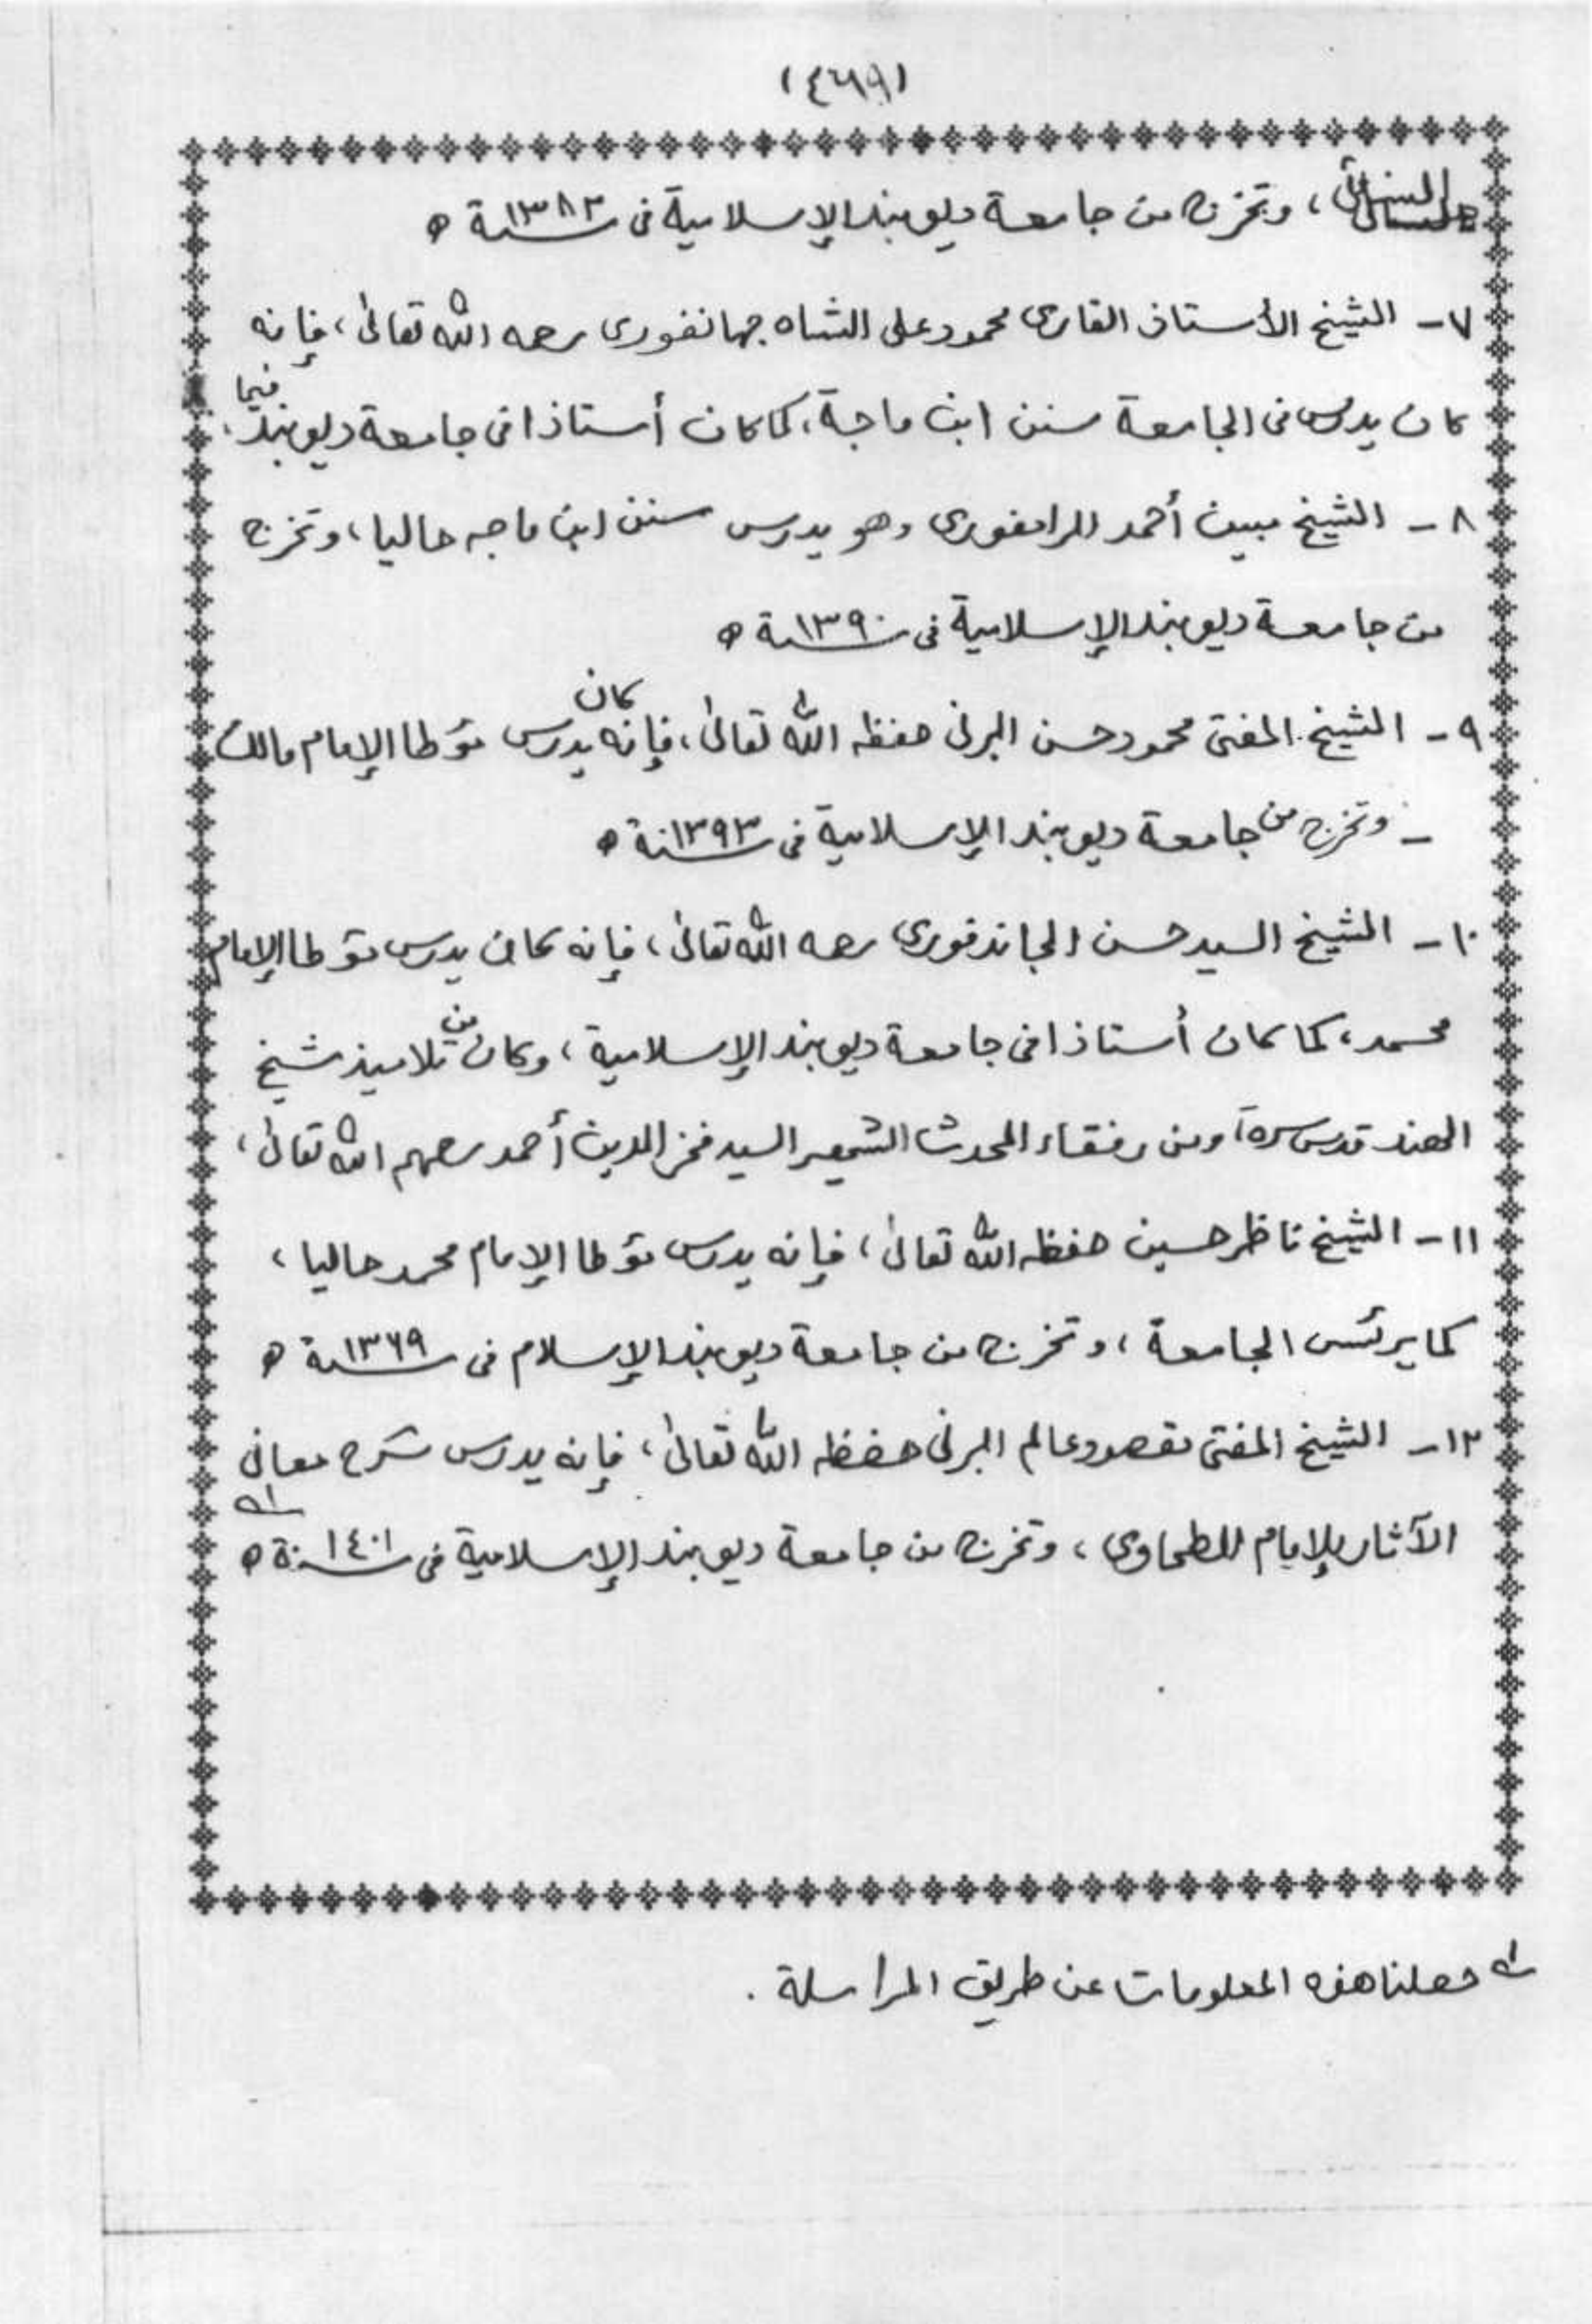 (٤٦٩)
النسائي، وتخرج من جامعة ديوبند الإسلامية فى سنة ١٣٨٣ ه
٧- الشيخ الأستاذ القارى محمود على الشاه جهانفورى رحمه الله تعالىٰ، فإنه
كان يدرس فى الجامعة سنن ابن ماجة، كما كان أستاذا فى جامعة ديوبند فيما.
٨- الشيخ مبين أحمد الرامفورى وهو يدرس سنن ابن ماجه حاليا، وتخرج
من جامعة ديوبند الإسلامية فى سنة ١٣٩٠ ه
٩- الشيخ المفتى محمود حسن البرنى حفظه الله تعالىٰ، فإنه كان يدرس مؤطا الإمام مالك
- وتخرج من جامعة ديوبند الإسلامية فى سنة ١٣٩٣ ه
١٠- الشيخ السيد حسن الجاندفورى رحمه الله تعالىٰ، فإنه كان يدرس مؤطا الإمام
محمد، كما كان أستاذا فى جامعة ديوبند الإسلامية، وكان من تلاميذ شيخ
الهند قدس سره، ومن رفقاء المحدث الشهير السيد فخر الدين أحمد رحمهم الله تعالىٰ،
١١- الشيخ ناظر حسين حفظه الله تعالىٰ، فإنه يدرس مؤطا الإمام محمد حاليا،
كما يرئس الجامعة، وتخرج من جامعة ديوبند الإسلام فى سنة ١٣٦٩ ه
١٢- الشيخ المفتى مقصود عالم البرنى حفظه الله تعالىٰ، فإنه يدرس شرح معانى
الآثار للإمام للطحاوى، وتخرج من جامعة ديوبند الإسلامية فى سنة ١٤٠١ ه ١ه
١ه حصلنا هذه المعلومات عن طريق المراسلة.